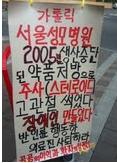 가톨릭
서울성모병원
2005년생산중단
된 약품처방으로
주사 스테로이드
고관절 썩었다
장애인 만들었다
반인륜 행동한
의료진 사퇴하라